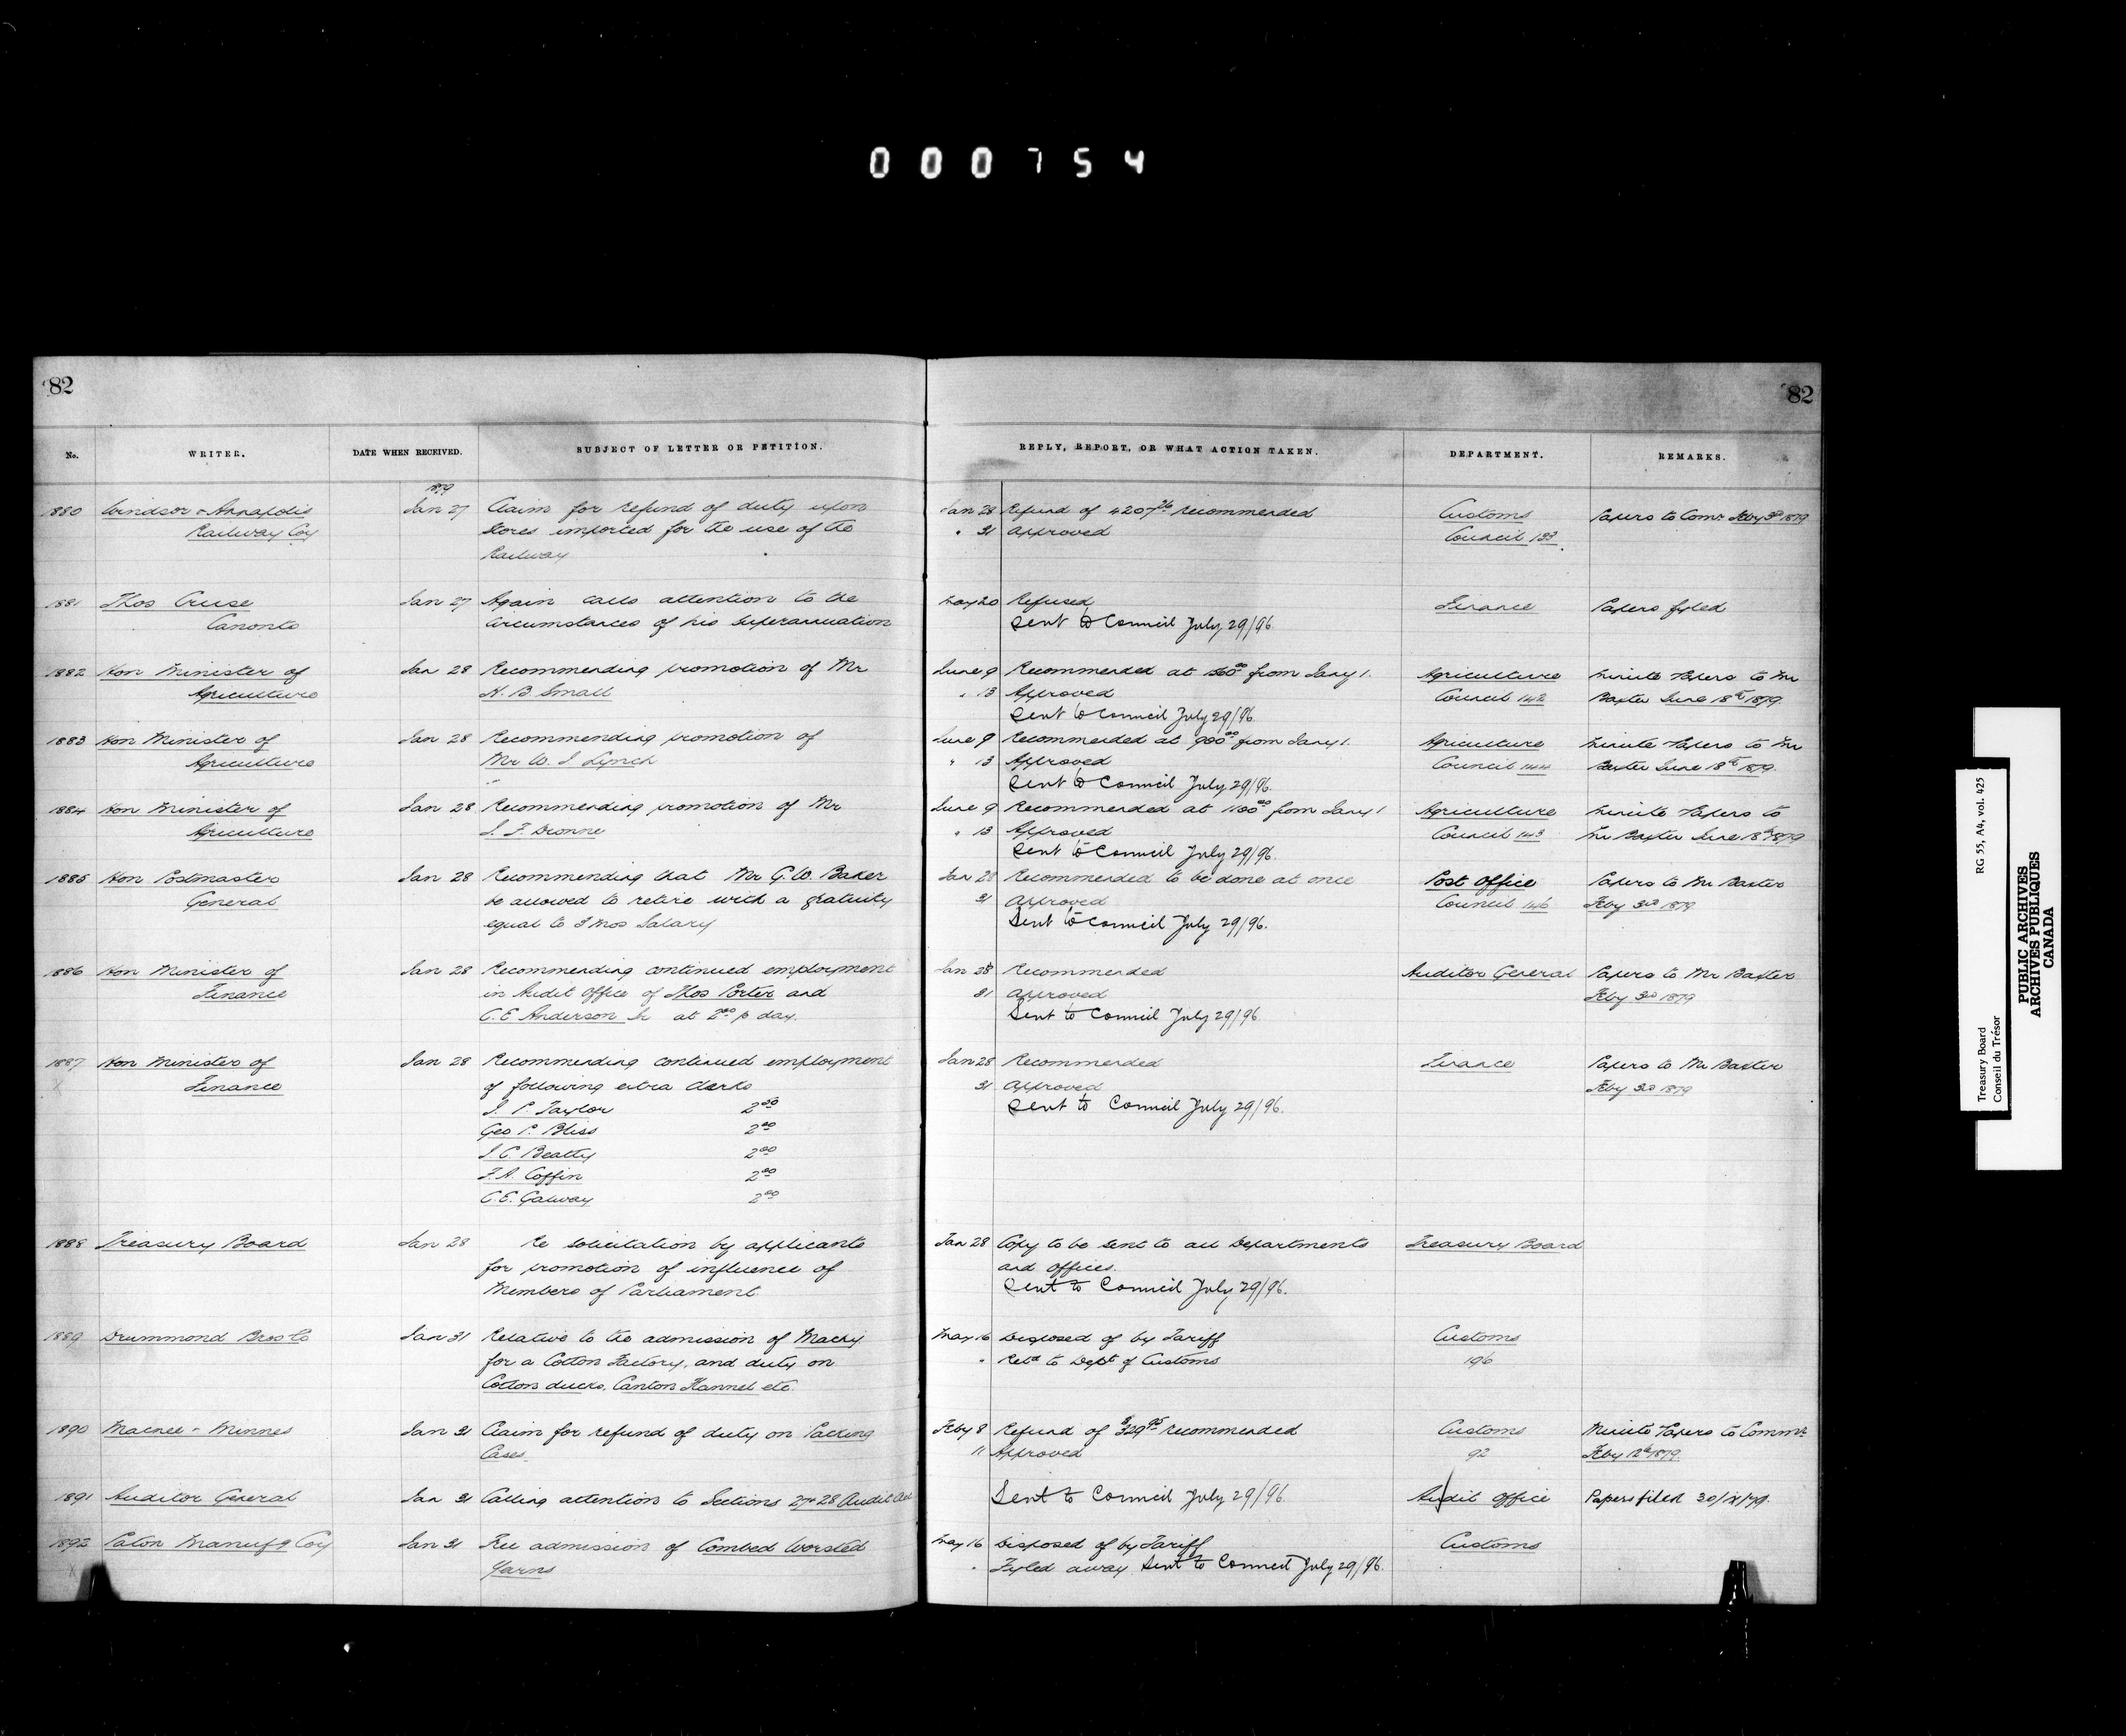 000754
82
82
No.
WRITER.
DATE WHEN RECEIVED.
SUBJECT OF LETTER OR PETITION.
REPLY, REPORT, OR WHAT ACTION TAKEN.
DEPARTMENT.
REMARKS.
1879
1880 Windsor & Annapolis Jan 27 Claim for refund of duty upon Jan 28 Refund of 4207 26 recommended Customs Papers to Comr Feby 3d 1879
Railway Coy stores imported for the use of the " 31 Approved Council 133
Railway
1881 Thos Cruse Jan 27 Again calls attention to the May 20 Refused Finance Papers fyled
circumstances of his superannuation Sent to Council July 29/96
1882 Hon Minister of Jan 28 Recommending promotion of Mr June 9 Recommended at from Jany 1. Agriculture Minute Papers to Mr
Agriculture H. B. Small " 13 Approved Council 142 Baxter June 18th 1879
Sent to Council July 29/96
1883 Hon Minister of Jan 28 Recommending promotion of June 9 Recommended at 900 00 from Jany 1. Agriculture Minute Papers to Mr
Agriculture Mr W. J Lynch " 13 Approved Council 144 Baxter June 18th 1879.
Sent to Council July 29/96.
1884 Hon Minister of Jan 28 Recommending promotion of Mr June 9 Recommended at 1100 00 from Jany 1 Agriculture Minute Papers to
Agriculture J. F. Dionne " 13 Approved Council 143 Mr Baxter June 18th 1879
Sent to Council July 29/96.
1885 Hon Postmaster Jan 28 Recommending that Mr G. W. Baker Jan 28 Recommended to be done at once Post Office Papers to Mr Baxter
General be allowed to retire with a gratuity 31 Approved Council 146 Feby 3rd 1879
equal to 3 mos Salary Sent to Council July 29/96.
1886 Hon Minister of Jan 28 Recommending continued employment Jan 28 Recommended Auditor General Papers to Mr Baxter
Finance in Audit Office of Thos Porter and 31 Approved Feby 3rd 1879
C. E Anderson Jr at 2 00 p day. Sent to Council July 29/96
1887 Hon Minister of Jan 28 Recommending continued employment Jan 28 Recommended Finance Papers to Mr Baxter
X Finance of following extra clerks 31 Approved Feby 3rd 1879
J. P. Taylor 2 00 Sent to Council July 29/96.
Geo P. Bliss 2 00
J. C. Beatty 2 00
F. A. Coffin 2 00
C. E. Galway 2 00
1888 Treasury Board Jan 28 Re solicitation by applicants Jan 28 Copy to be sent to all Departments Treasury Board
for promotion of influence of and offices.
Members of Parliament. Sent to Council July 29/96.
1889 Drummond Bros Co Jan 31 Relative to the admission of Machy May 16 Disposed of by Tariff Customs
for a Cotton Factory, and duty on " Retd to Dept of Customs 196
Cotton ducks, Canton Flannel etc.
1890 Macnee & Minnes Jan 31 Claim for refund of duty on Packing Feby 8 Refund of $329 95 recommended Customs Minute Papers to Commr
Cases. 11 Approved 92 Feby 12th 1879.
1891 Auditor General Jan 31 Calling attention to Sections 27 & 28 Audit Act Sent to Council July 29/96. Audit Office Papers filed 30/ix/79.
1892 Paton Manufg Coy Jan 31 Free admission of Combed Worsted May 16 Disposed of by Tariff Customs
X Yarns " Fyled away. Sent to Council July 29/96.
RG 55, A4, vol. 425
Treasury Board
Conseil du Trésor
PUBLIC ARCHIVES
ARCHIVES PUBLIQUES
CANADA